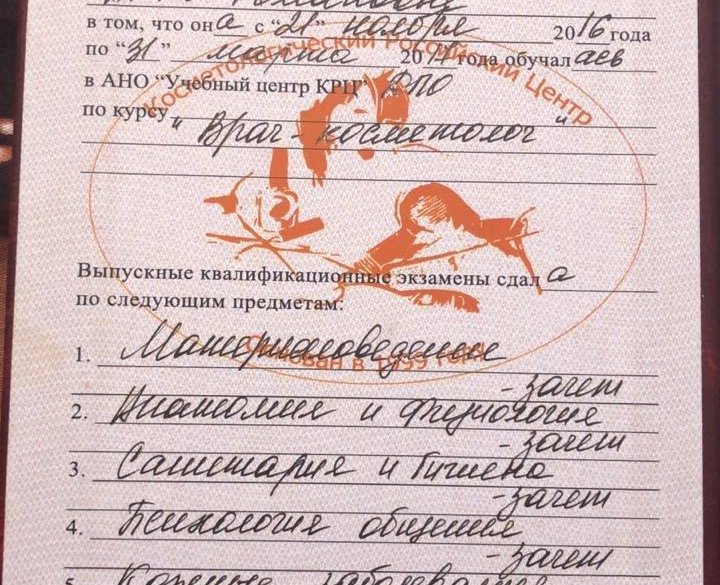 в том, что она с "21" ноября 2016 года
по "31" марта 2017 года обучалась
в АНО "Учебный центр КРЦ" ДПО
по курсу "Врач-косметолог"
Косметологический Российский Центр
Выпускные квалификационные экзамены сдала
по следующим предметам:
1. Материаловедение
- зачет
2. Анатомия и физиология
- зачет
3. Санитария и гигиена
- зачет
4. Психология общения
- зачет
5. Кожные
Основан в 1999 году